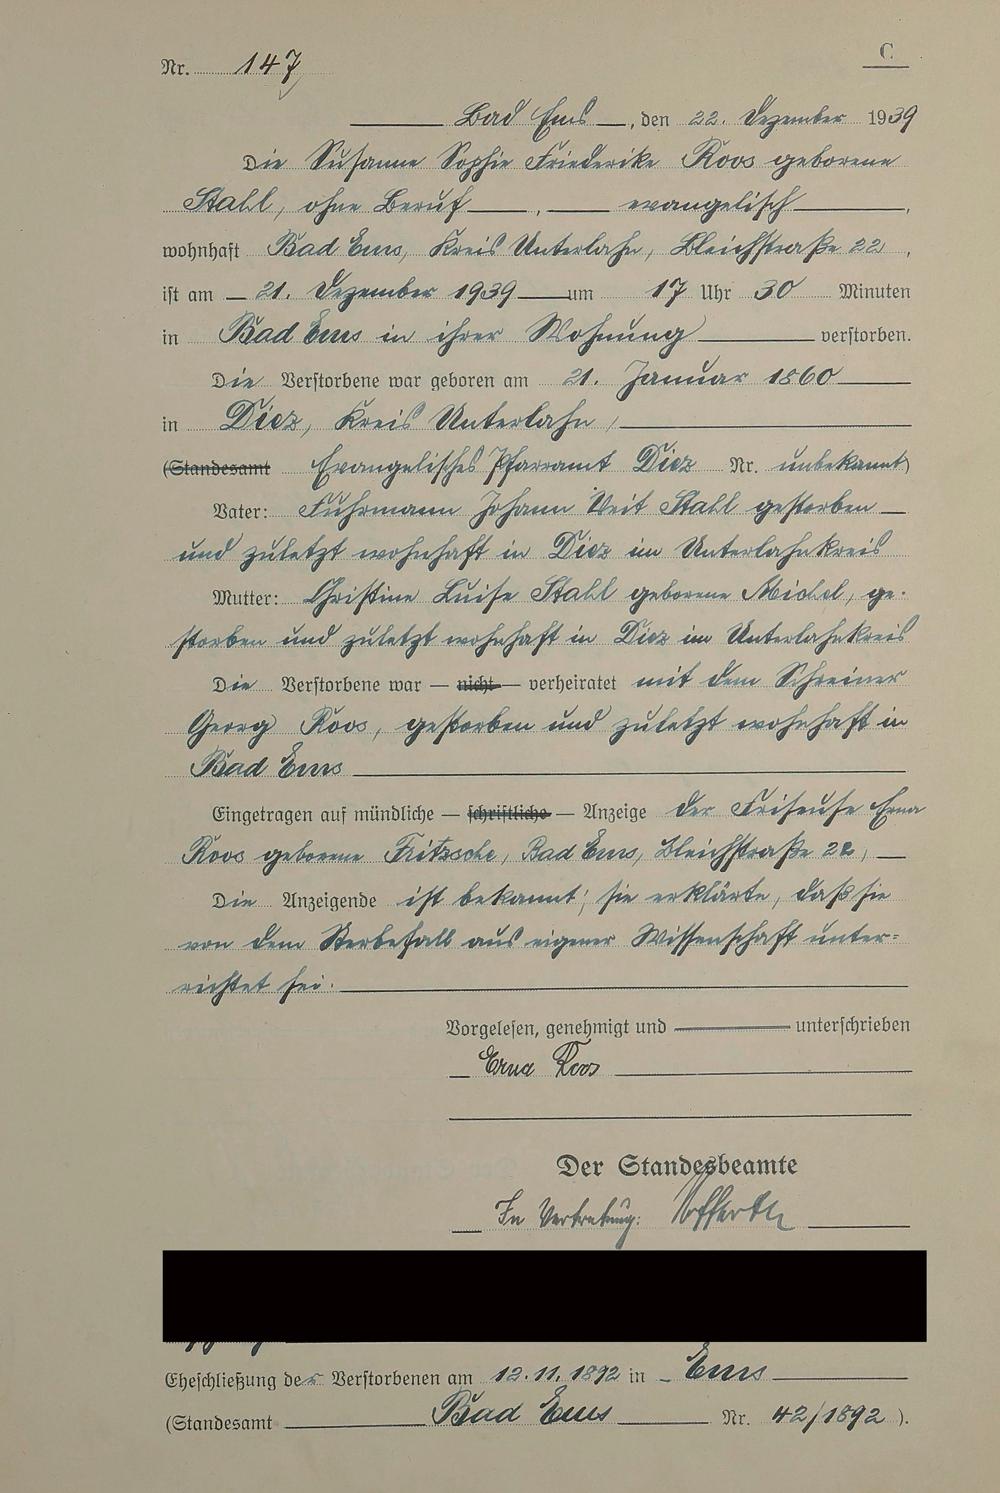 C
Nr. 147
Bad Ems, den 22. Dezember 1939
Die Susanne Sophie Friederike Roos geborene
Stahl, ohne Beruf, evangelisch,
wohnhaft Bad Ems, Kreis Unterlahn, Bleichstraße 22,
ist am 21. Dezember 1939 um 17 Uhr 30 Minuten
in Bad Ems in ihrer Wohnung verstorben.
Die Verstorbene war geboren am 21. Januar 1860
in Diez, Kreis Unterlahn
(Standesamt Evangelisches Pfarramt Diez Nr. unbekannt)
Vater: Fuhrmann Johann Veit Stahl gestorben
und zuletzt wohnhaft in Diez im Unterlahnkreis
Mutter: Christine Luise Stahl geborene Michel, ge-
storben und zuletzt wohnhaft in Diez im Unterlahnkreis
Die Verstorbene war — nicht — verheiratet mit dem Schreiner
Georg Roos, gestorben und zuletzt wohnhaft in
Bad Ems
Eingetragen auf mündliche — schriftliche — Anzeige der Friseuse Erna
Roos geborene Fritzsche, Bad Ems, Bleichstraße 22,
Die Anzeigende ist bekannt; sie erklärte, daß sie
von dem Sterbefall aus eigener Wissenschaft unter=
richtet sei.
Vorgelesen, genehmigt und unterschrieben
Erna Roos
Der Standesbeamte
In Vertretung:
Eheschließung der Verstorbenen am 12.11.1892 in Ems
(Standesamt Bad Ems Nr. 42/1892).